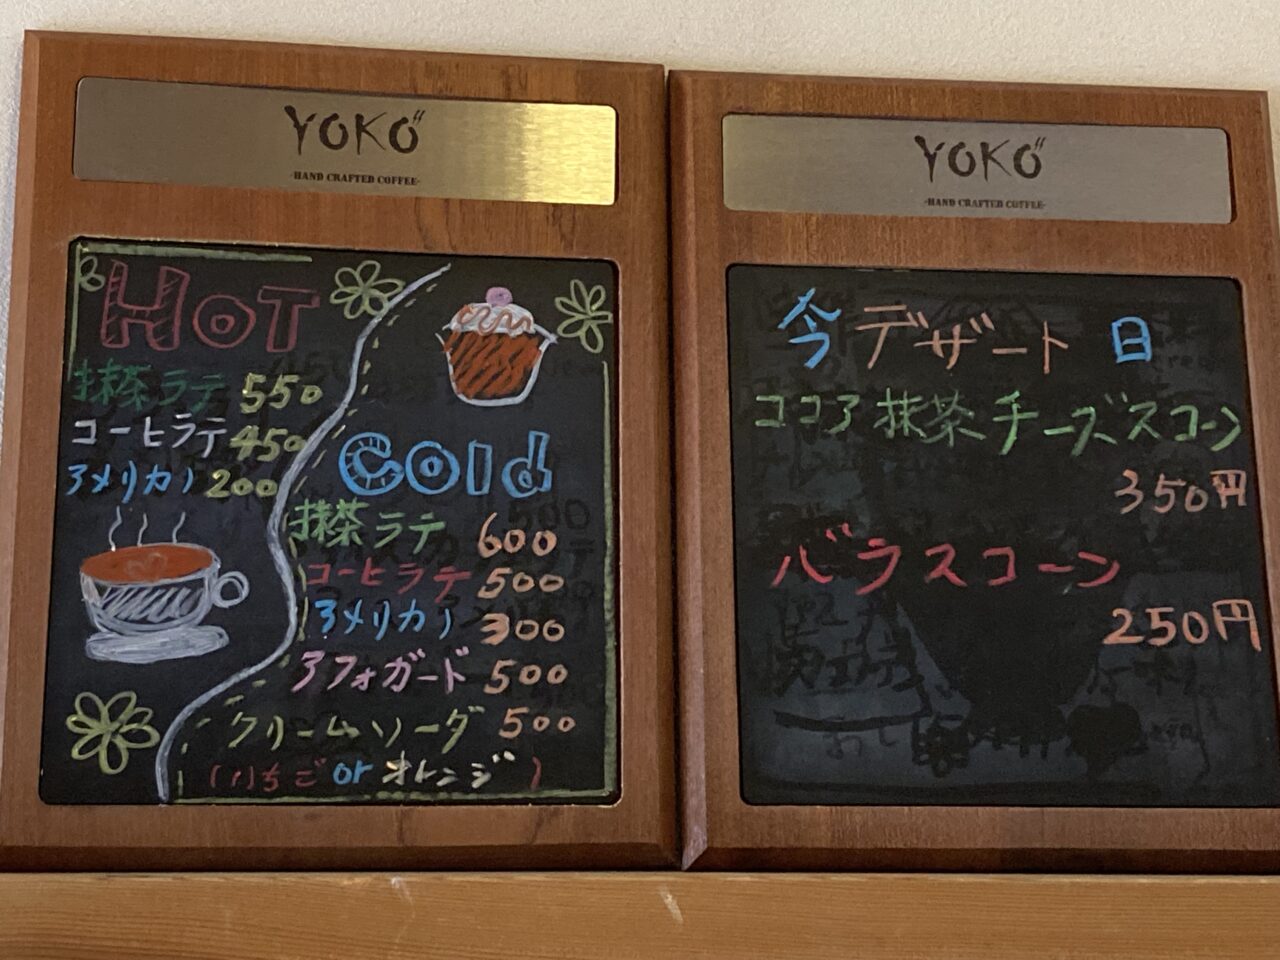 YOKO"
-HAND CRAFTED COFFEE-
HOT
抹茶ラテ 550
コーヒラテ 450
アメリカノ 200
Cold
抹茶ラテ 600
コーヒラテ 500
アメリカノ 300
アフォガード 500
クリームソーダ 500
(いちご or オレンジ)
YOKO"
-HAND CRAFTED COFFEE-
今デザート日
ココア抹茶チーズスコーン
350円
バラスコーン
250円